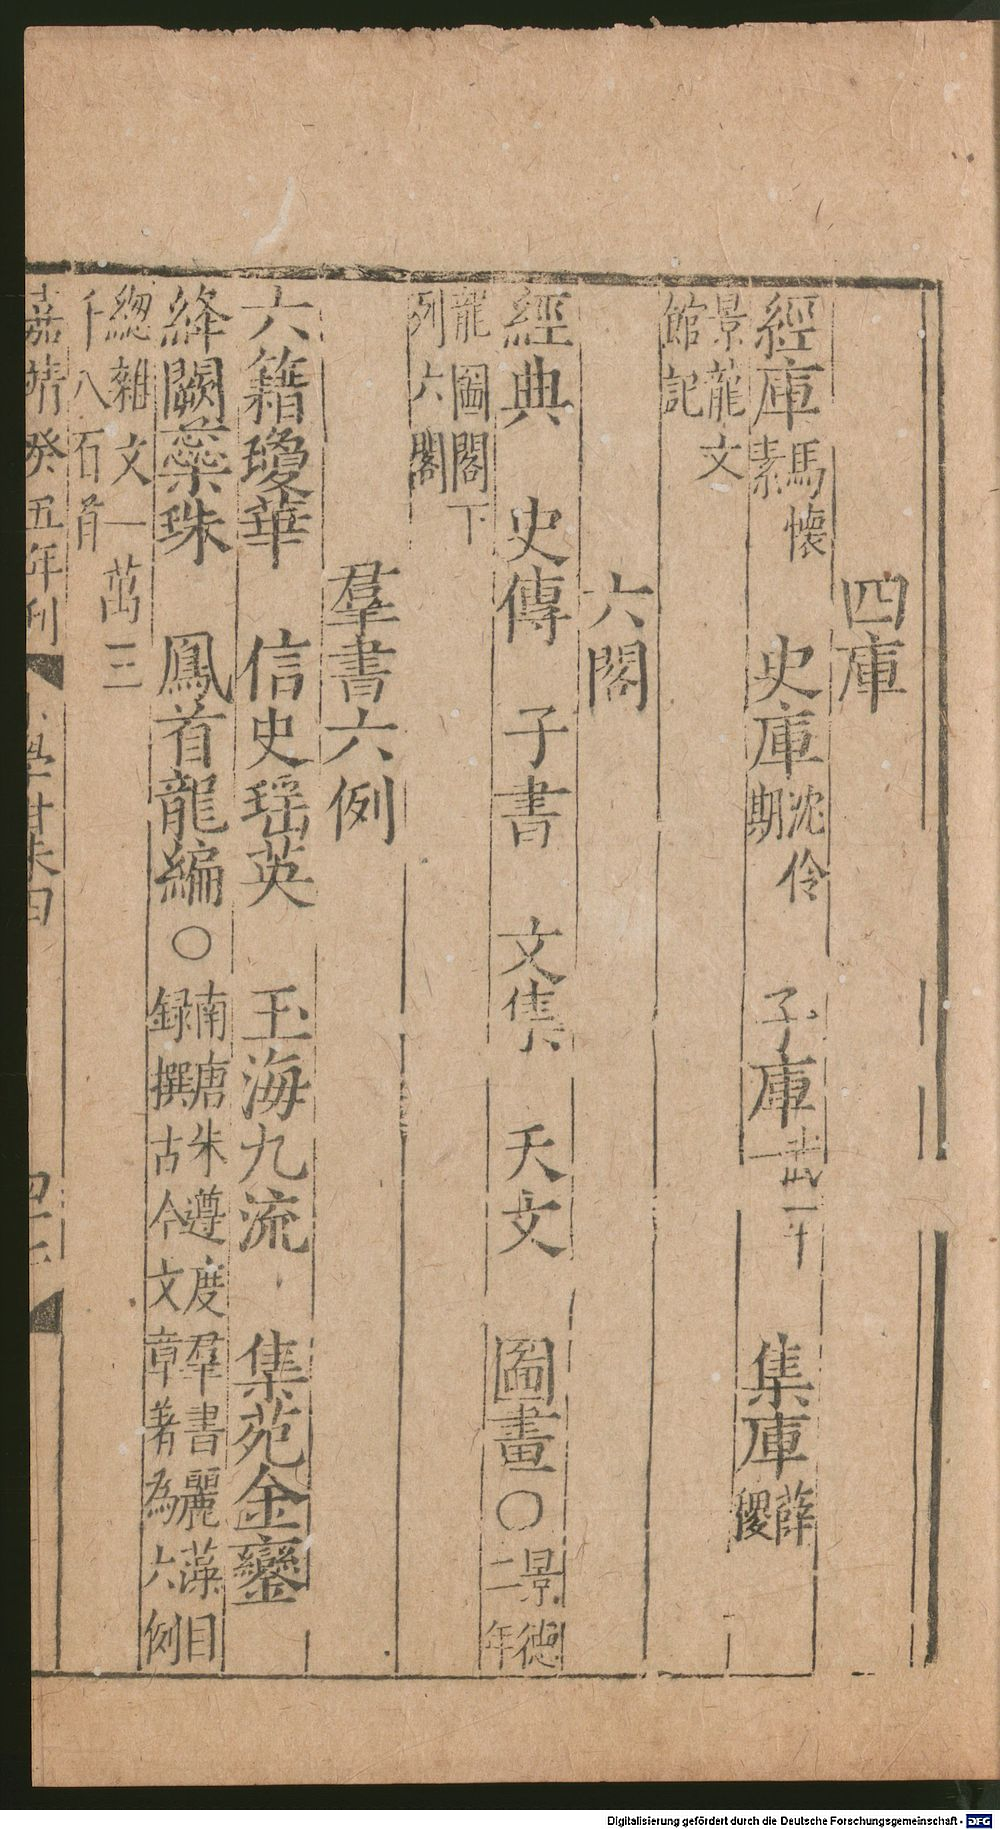 四庫
經庫馬懷素 史庫沈佺期 子庫武平一 集庫薛稷
景龍文館記
六閣
經典 史傳 子書 文集 天文 圖畫〇景德二年
龍圖閣下列六閣
羣書六例
六籍瓊華 信史瑶英 玉海九流 集苑金鑾
絳闕蘂珠 鳳首龍編〇南唐朱遵度羣書麗藻目録撰古今文章著為六例
緫雜文一萬三千八百首
嘉靖癸五年刊 小學紺珠四
Digitalisierung gefördert durch die Deutsche Forschungsgemeinschaft - DFG